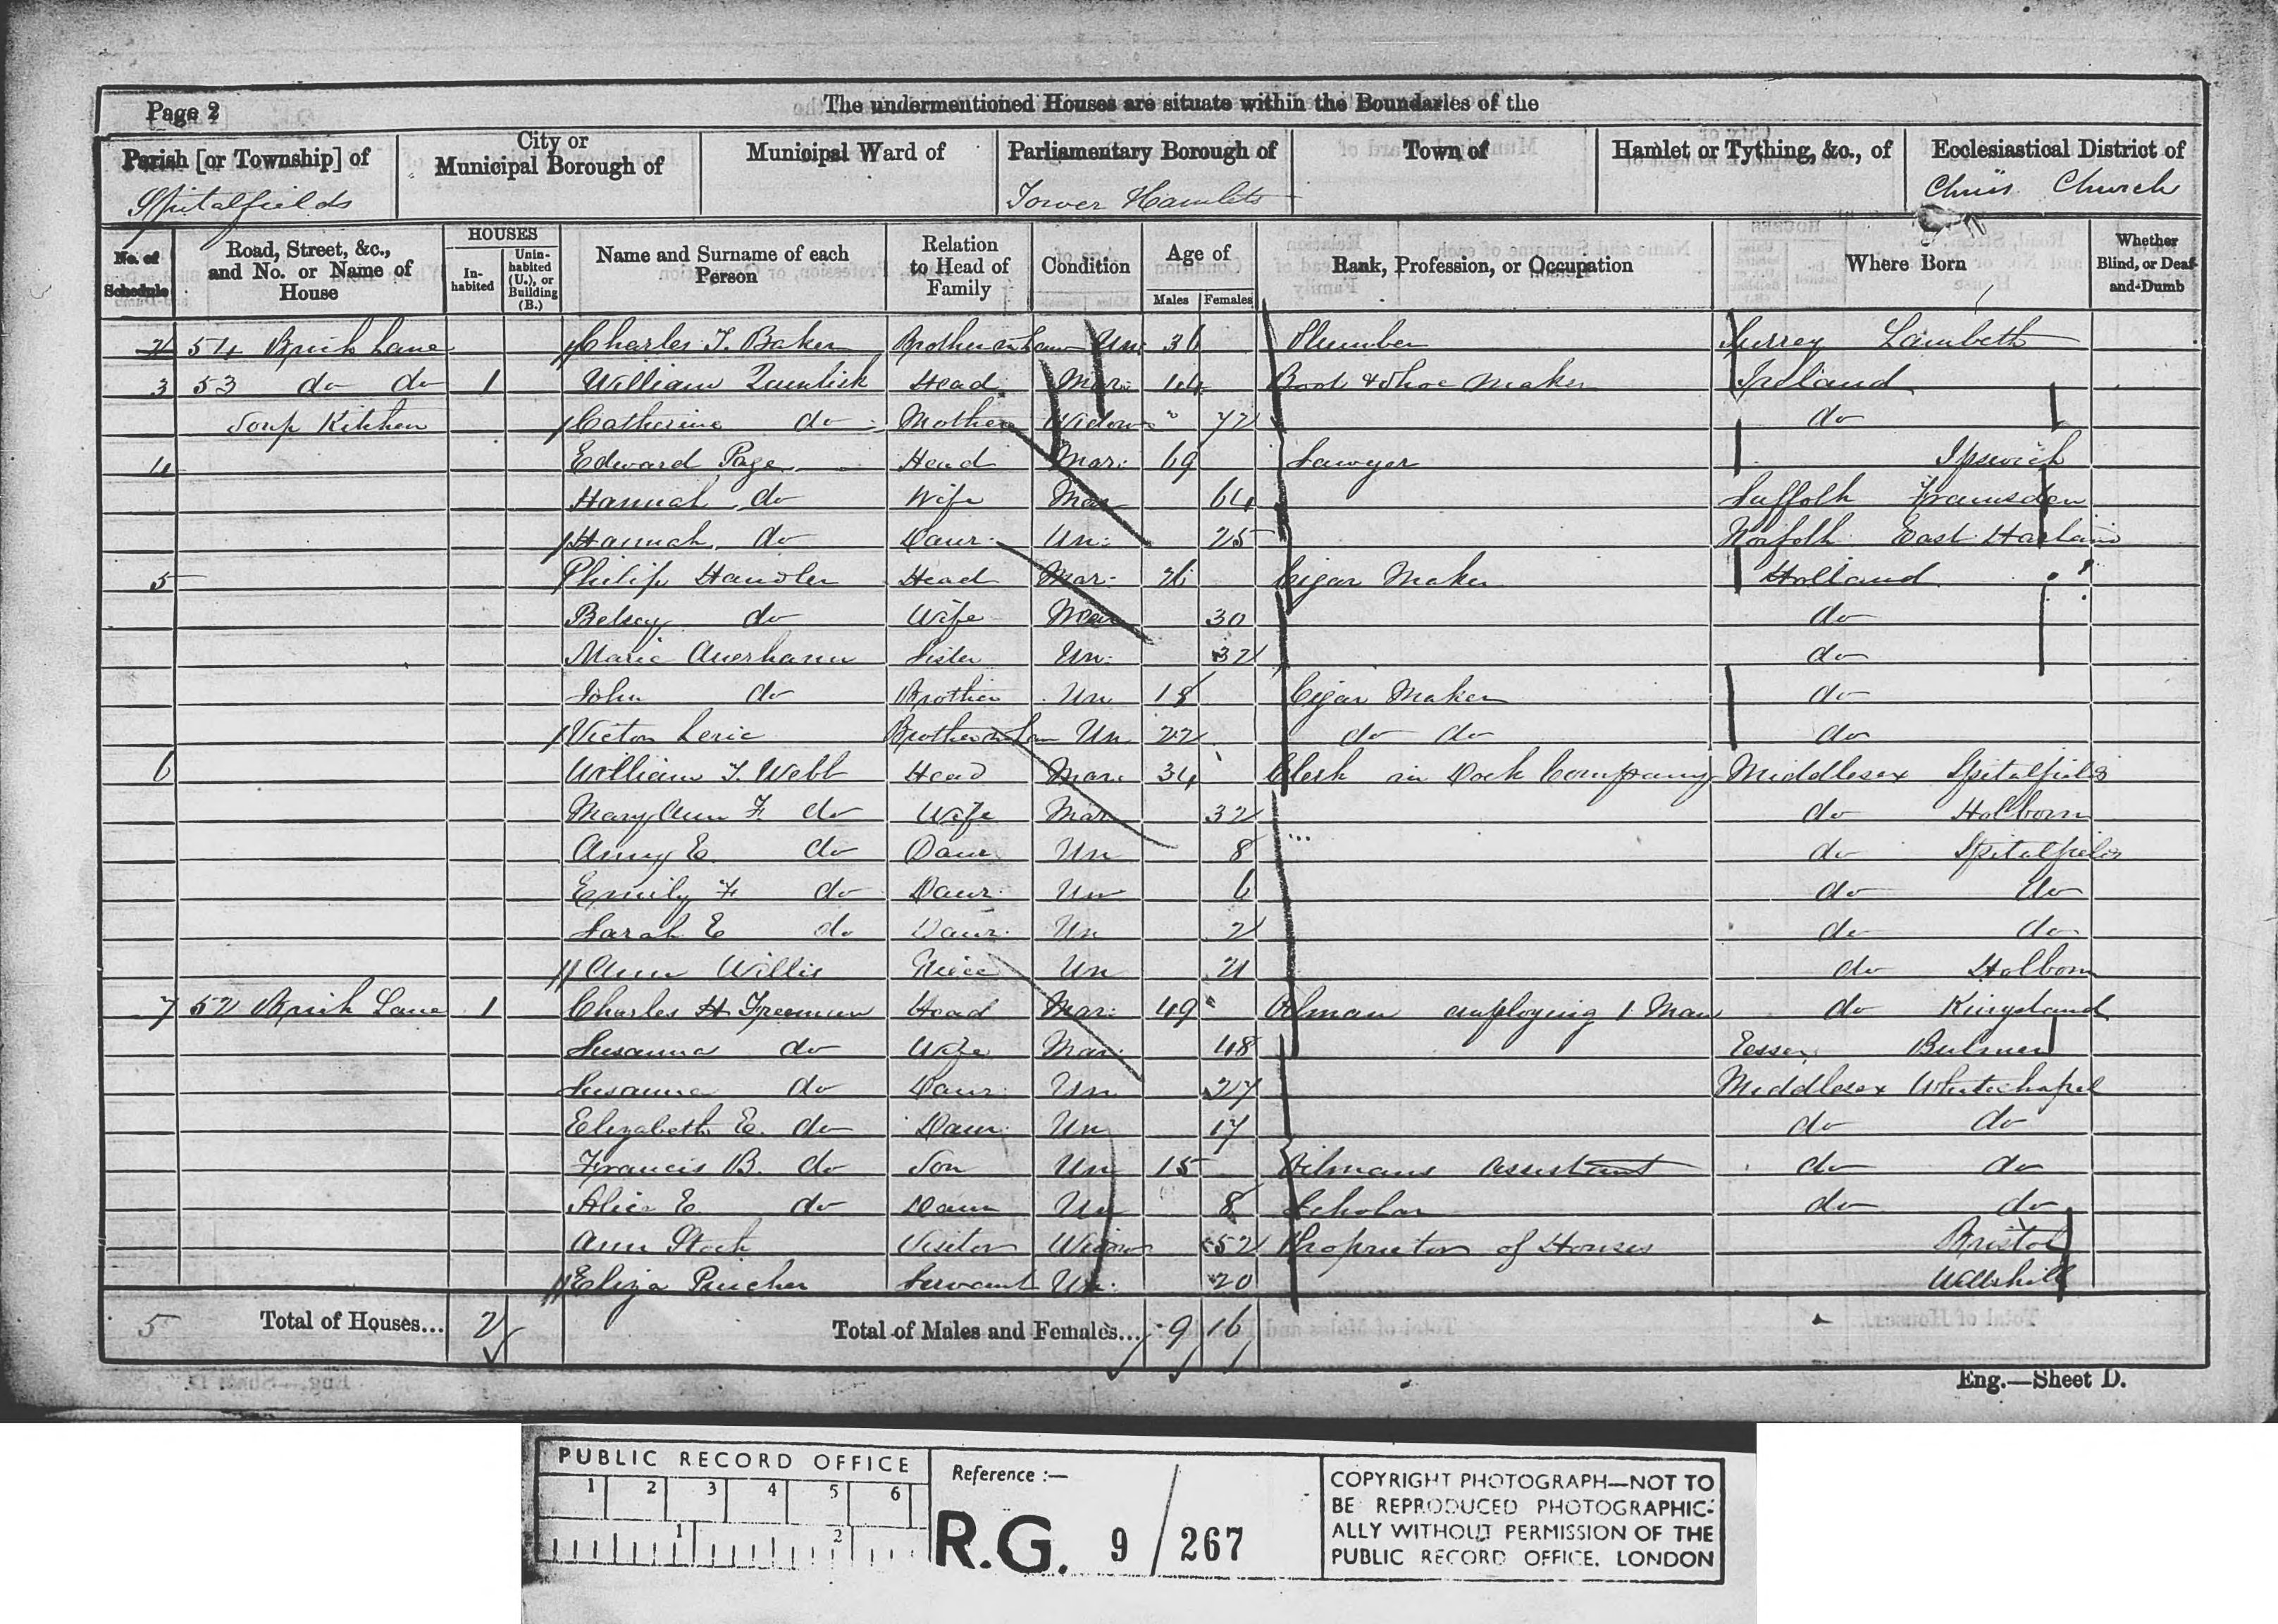 Page 2
The undermentioned Houses are situate within the Boundaries of the
Parish [or Township] of
Spitalfields
City or Municipal Borough of
Municipal Ward of
Parliamentary Borough of
Tower Hamlets
Town of
Hamlet or Tything, &c., of
Ecclesiastical District of
Church
No. of Schedule
Road, Street, &c., and No. or Name of House
HOUSES
Inhabited
Uninhabited (U.), or Building (B.)
Name and Surname of each Person
Relation to Head of Family
Condition
Age of
Males
Females
Rank, Profession, or Occupation
Where Born
Whether Blind, or Deaf-and-Dumb
2 54 Brick Lane Charles T. Baker Brother in Law Un: 36 Plumber Surrey Lambeth
3 53 do do 1 William Head Mar: 44 Boot & Shoe Maker Ireland
Soup Kitchen Catherine do Mother Widow 72 do
4 Edward Page Head Mar: 69 Sawyer Ipswich
Hannah do Wife Mar 64 Suffolk Framsden
Hannah do Daur Un: 25 Norfolk East
5 Philip Handler Head Mar 26 Cigar Maker Holland
Betsey do Wife Mar 30 do
Marie Sister Un: 32 do
John do Brother Un 18 Cigar Maker do
Victor Brother in Law Un 22 do do do
6 William T. Webb Head Mar: 34 Clerk in Dock Company Middlesex Spitalfields
Mary Ann F. do Wife Mar 32 do Holborn
Amy E. do Daur Un 8 do Spitalfields
Emily F do Daur Un 6 do do
Sarah E do Daur Un 2 do do
Ann Willis Niece Un 21 do Holborn
7 52 Brick Lane 1 Charles H Freeman Head Mar: 49 Oilman employing 1 Man do Kingsland
Susanna do Wife Mar: 48 Essex Bulmer
Susanna do Daur Un 27 Middlesex Whitechapel
Elizabeth E. do Daur Un 17 do do
Francis B. do Son Un 15 Oilmans assistant do do
Alice E do Daur Un 8 Scholar do do
Ann Visitor Widow 52 Proprietor of Houses Bristol
Eliza Servant Un: 20
5 Total of Houses... 2
Total of Males and Females... 9 16
Eng.—Sheet D.
PUBLIC RECORD OFFICE
1 2 3 4 5 6
1 2
Reference :—
R.G. 9/267
COPYRIGHT PHOTOGRAPH—NOT TO
BE REPRODUCED PHOTOGRAPHIC-
ALLY WITHOUT PERMISSION OF THE
PUBLIC RECORD OFFICE, LONDON